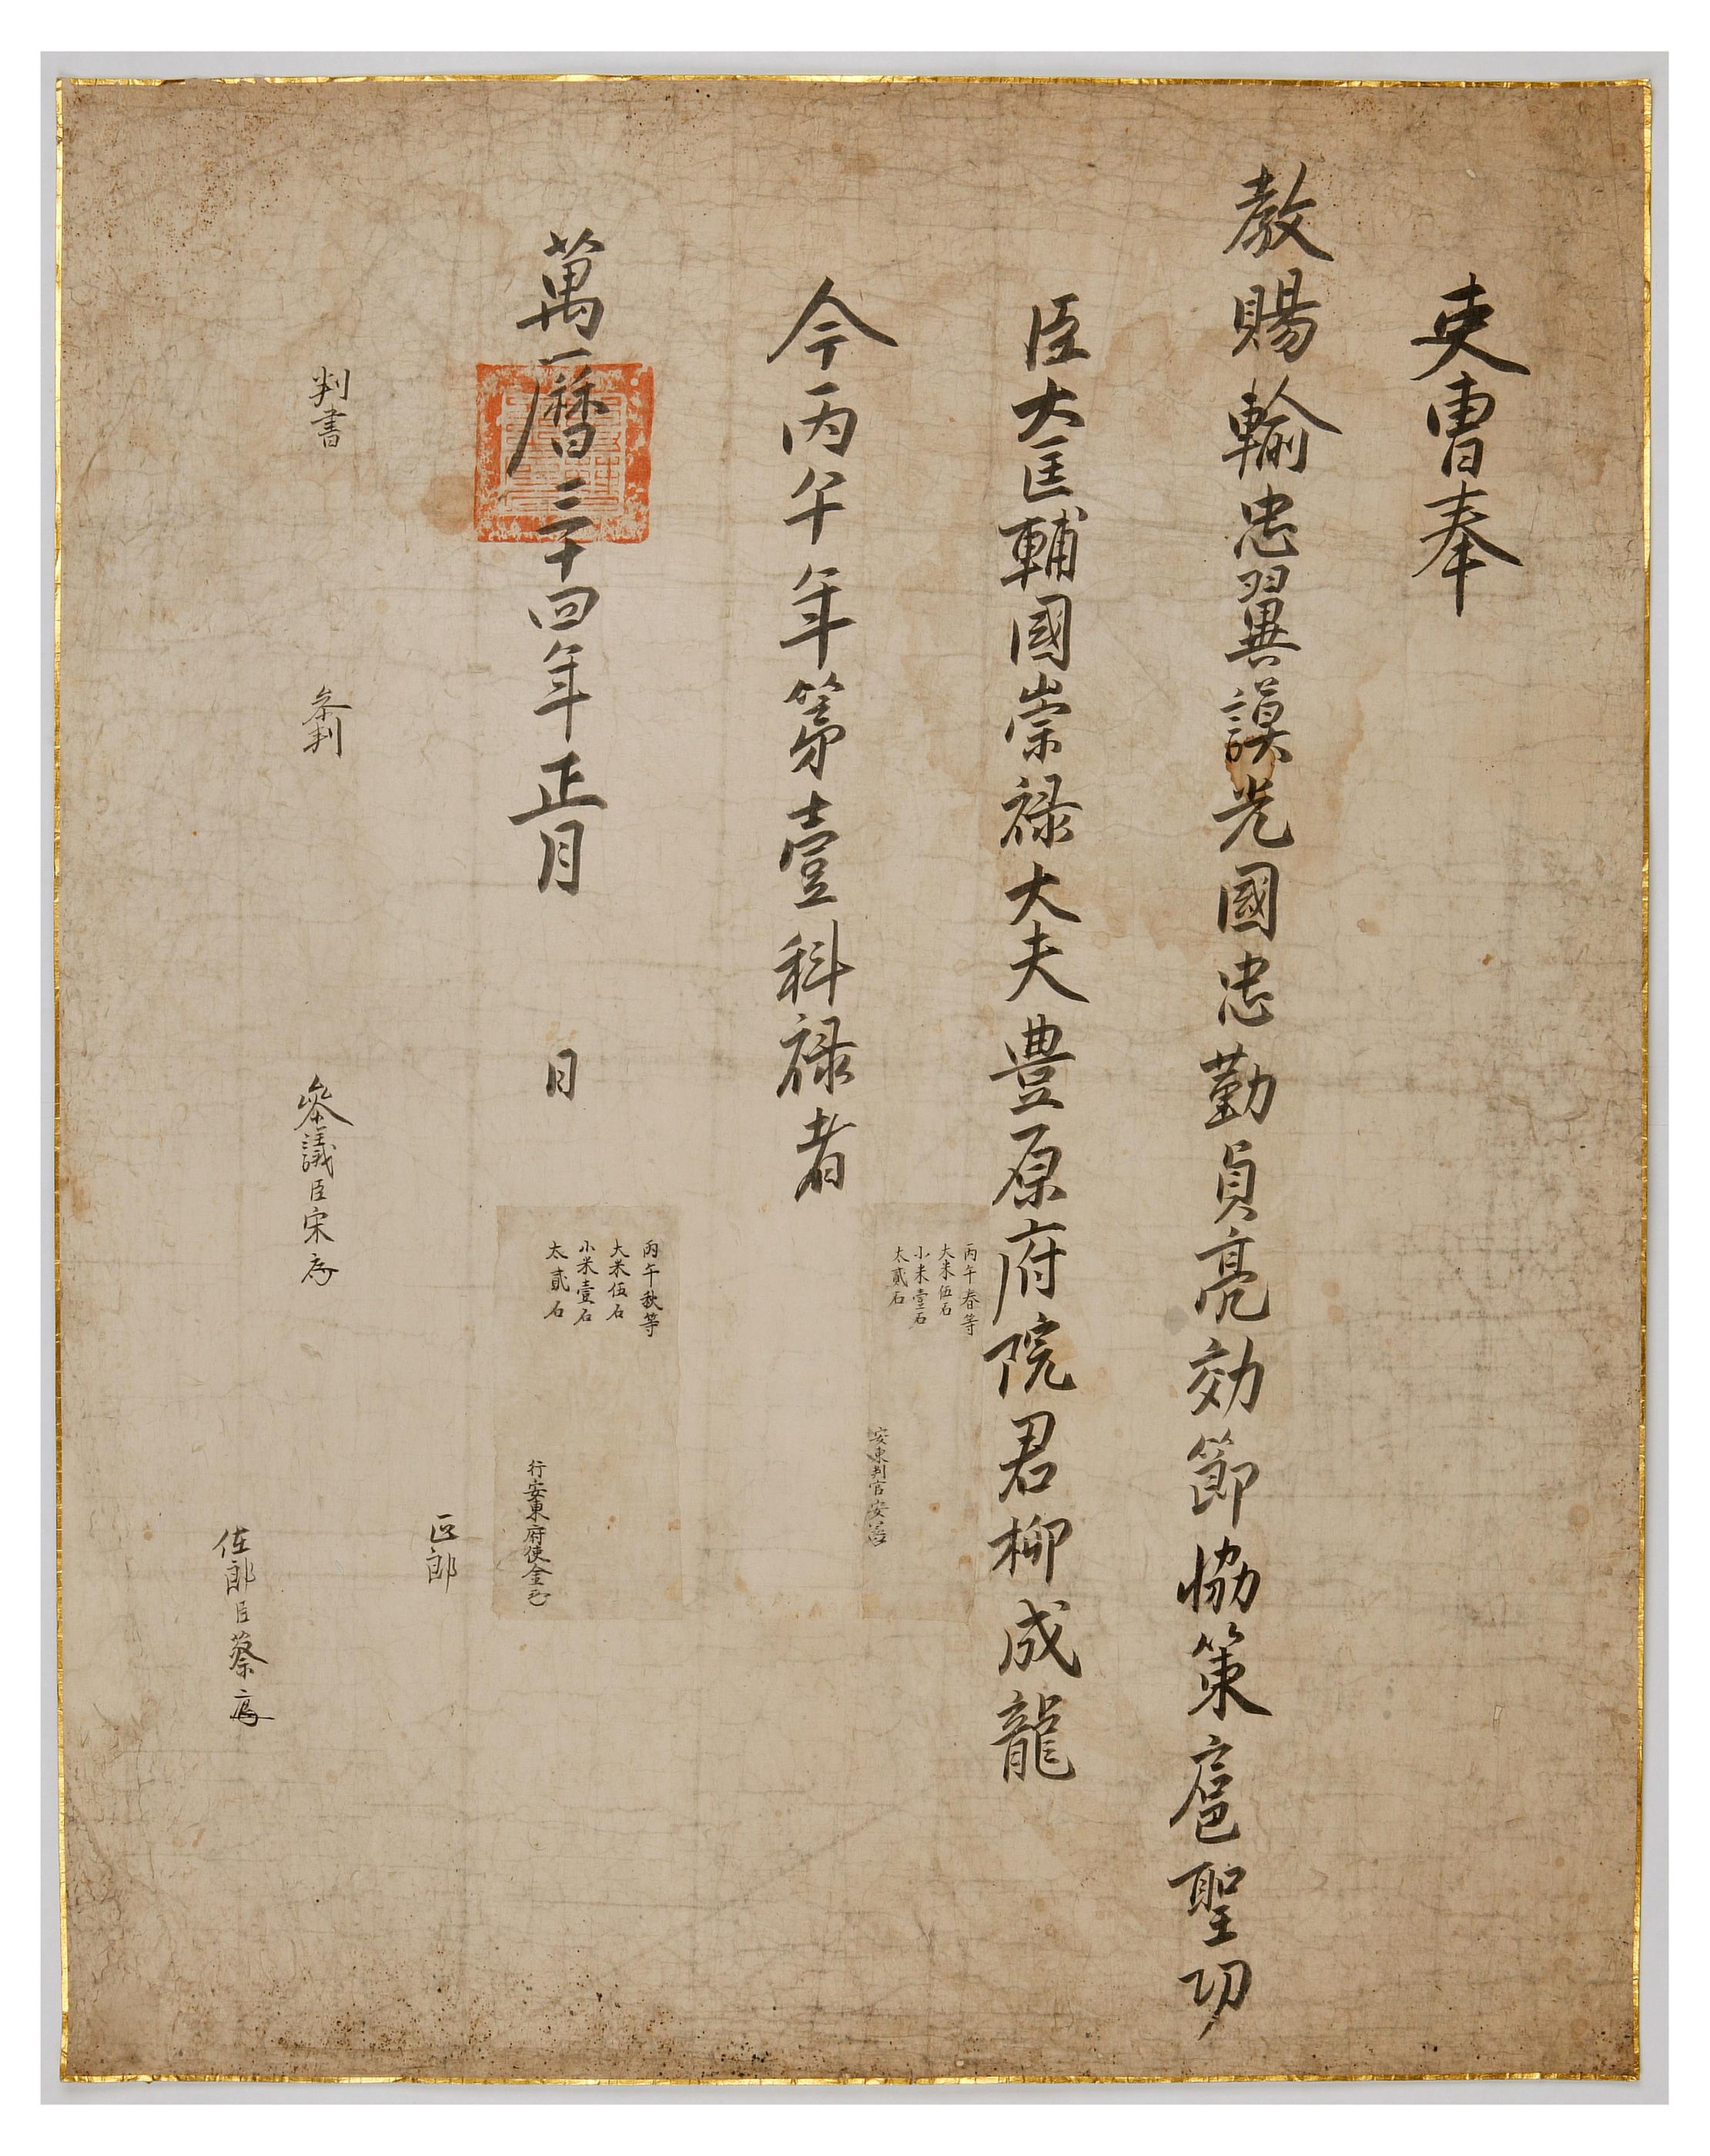 吏曹奉
教賜輸忠翼謨光國忠勤貞亮効節協策扈聖功
臣大匡輔國崇祿大夫豊原府院君柳成龍
今丙午年第壹科祿者
丙午春等
大米伍石
小米壹石
太貳石
安東判官安
萬曆三十四年正月 日
丙午秋等
大米伍石
小米壹石
太貳石
行安東府使金
判書 參判 參議臣宋
正郎
佐郎臣蔡